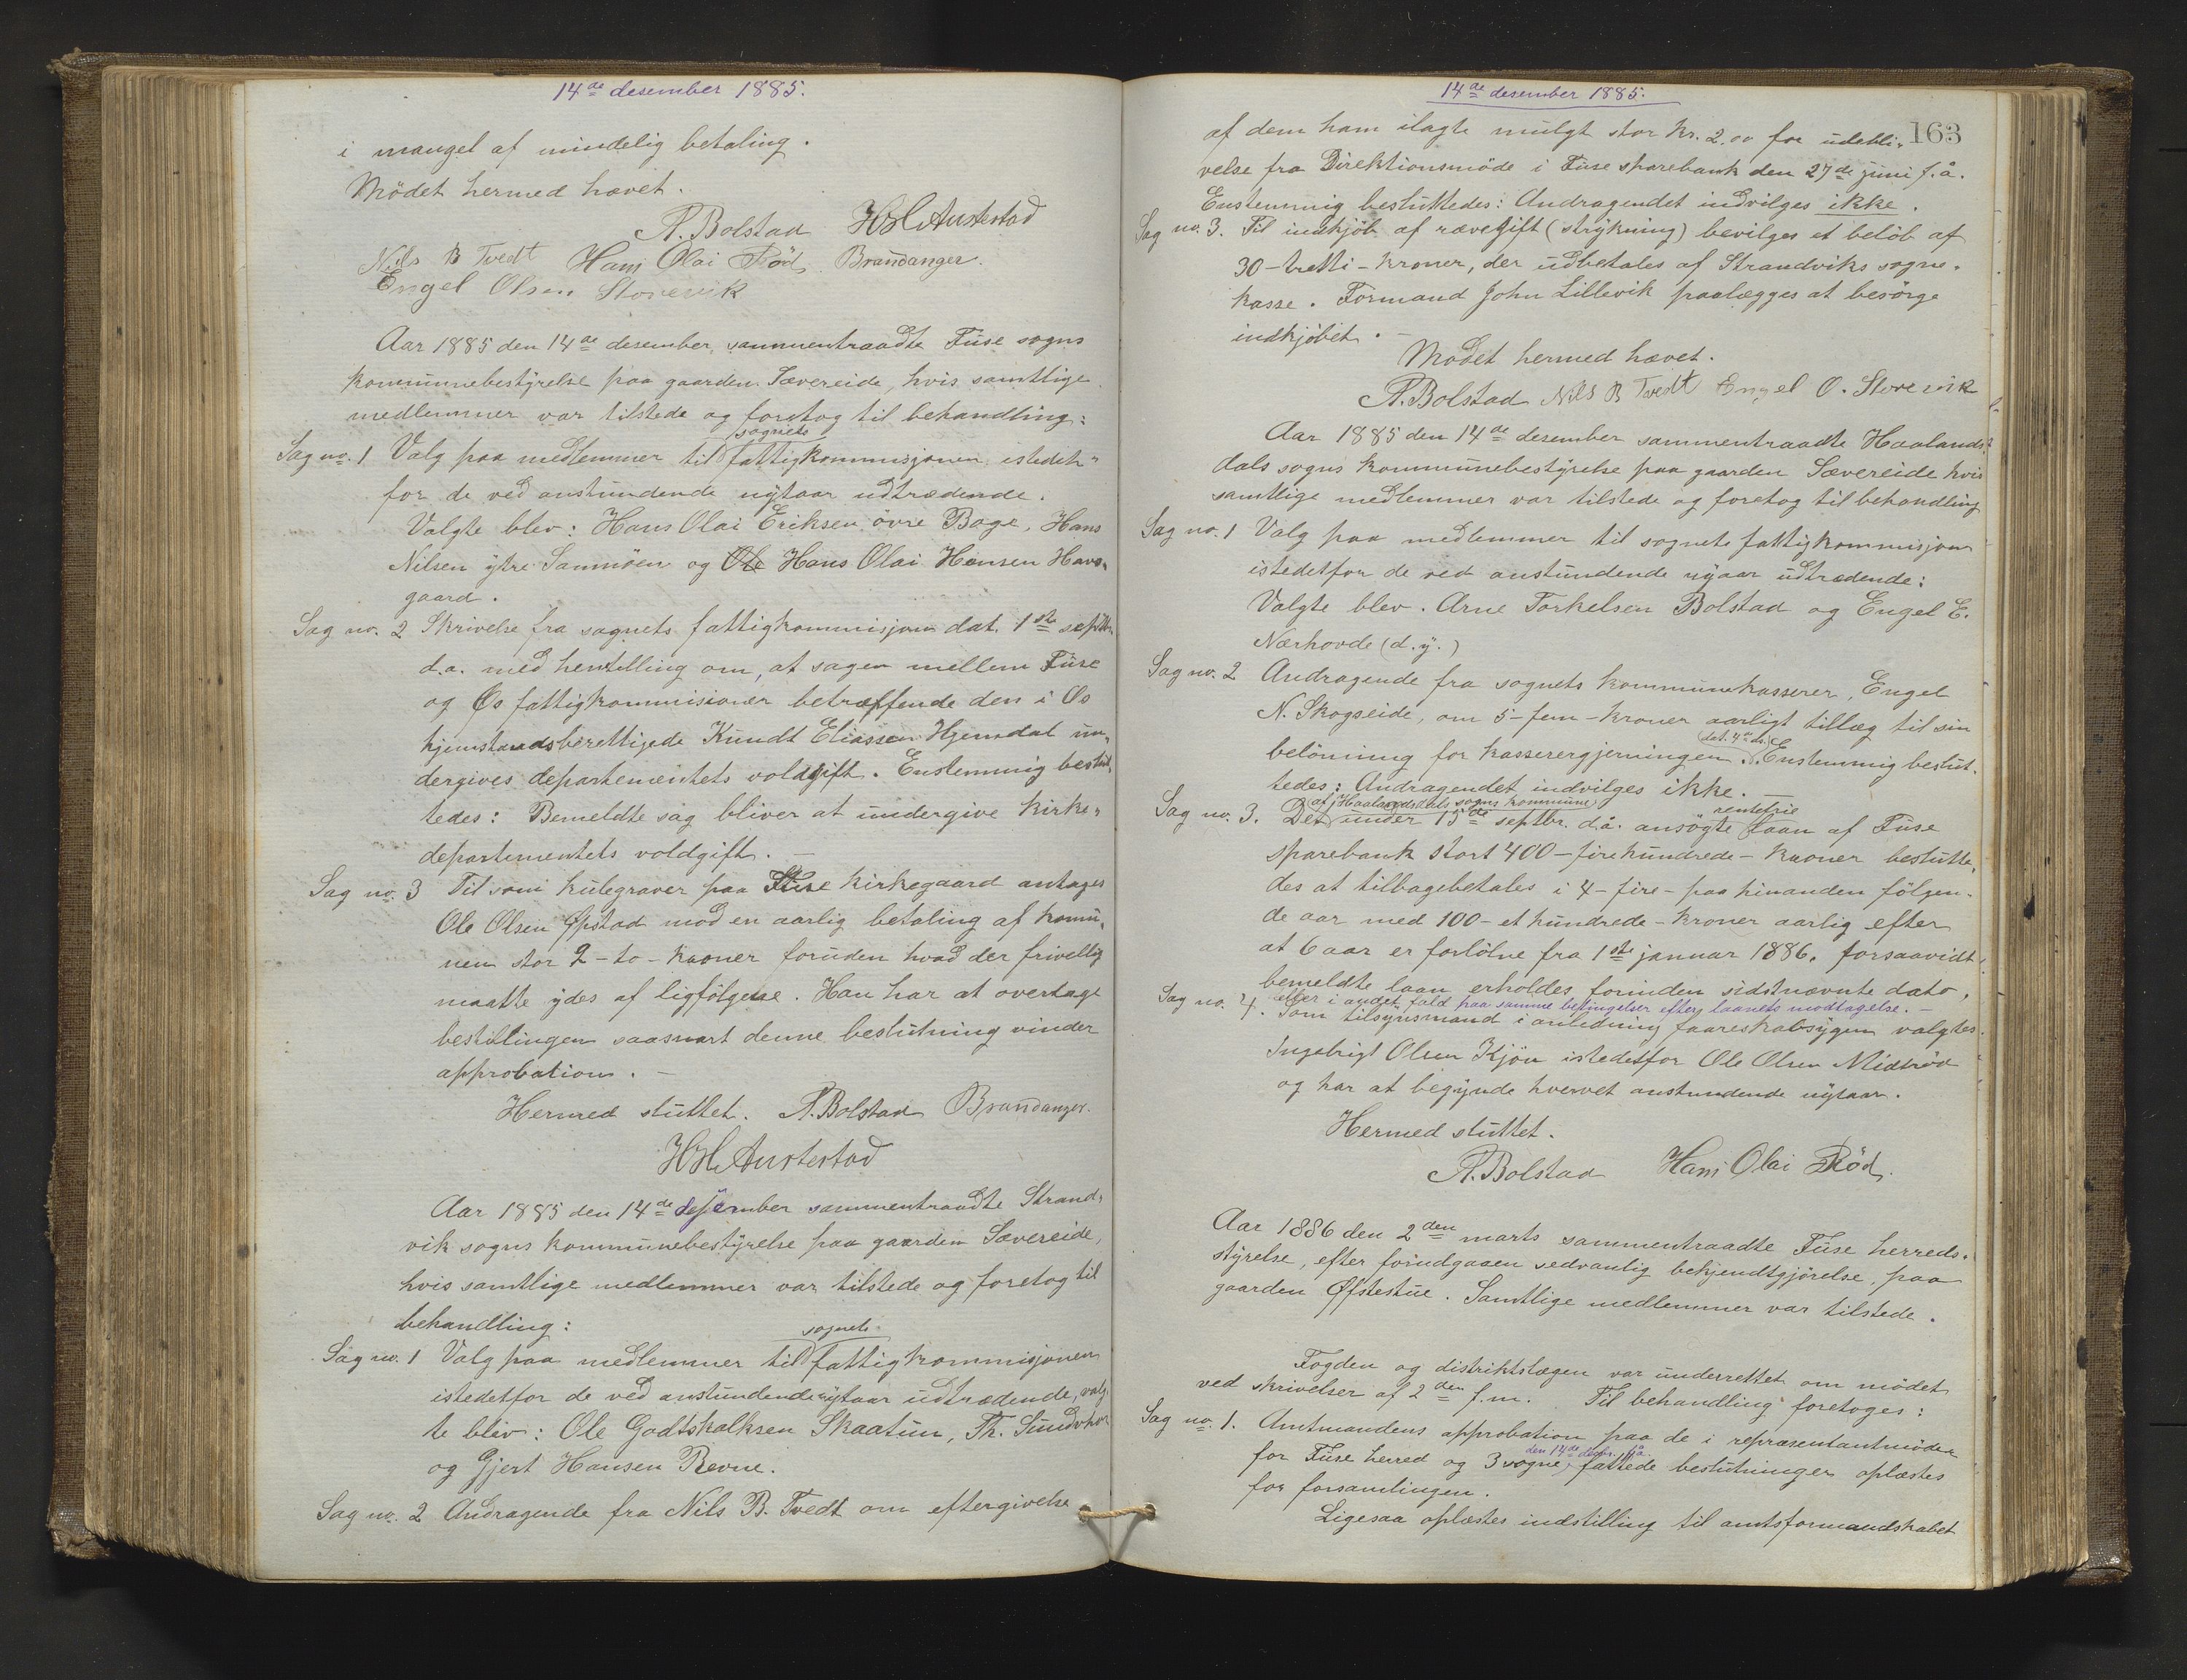 14de desember 1885.
i mangel af mindelig betaling.
Mödet hermed hævet.
A. Bolstad HHAustestad
Nils B Tvedt Hans Olai Röd Brandanger.
Engel Olsen Storevik
Aar 1885 den 14de desember sammentraadte Fuse sogns
kommunebestyrelse paa gaarden Sævereide, hvis samtlige
medlemmer var tilstede og foretog til behandling:
sognets
Sag no. 1 Valg paa medlemmer til fattigkommisjonen istedet-
for de ved anstundende nytaar udtrædende.
Valgte blev: Hans Olai Eriksen övre Bage, Hans
Nilsen ytre Samnöen og Ole Hans Olai Hansen Havs-
gaard.
Sag no. 2 Skrivelse fra sognets fattigkommisjon dat. 1ste septbr.
d.a. med henstilling om, at sagen mellem Fuse
og Os fattigkommisioner betræffende den i Os
hjemstandsberettigede Kundt Eliassen Hjemdal un-
dergives departementets voldgift. Enstemmig beslut-
tedes: Bemeldte sag bliver at undergive kirke-
departementets voldgift. —
Sag no. 3 Til som kulegraver paa Fuse kirkegaard antages
Ole Olsen Øpstad mod en aarlig betaling af komu-
nen stor 2 - to - kroner foruden hvad der frivillig
maatte ydes af ligfölgene. Han har at overtage
bestillingen saasnart denne beslutning vinder
approbation. —
Hermed sluttet. A. Bolstad Brandanger.
HHAustestad
Aar 1885 den 14de desember sammentraadte Strand-
vik sogns kommunebestyrelse paa gaarden Sævereide,
hvis samtlige medlemmer var tilstede og foretog til
behandling:
sognets
Sag no. 1 Valg paa medlemmer til fattigkommisjonen
istedetfor de ved anstundende nytaar udtrædende, valg-
te blev: Ole Godtskalksen Skaatun, Th. Sundvhor
og Gjert Hansen Revne.
Sag no. 2 Andragende fra Nils B. Tvedt om eftergivelse
14de desember 1885.
163
af dem ham ilagte mulgt stor kr. 2.00 for udebli-
velse fra Direktionsmöde i Fuse sparebank den 27de juni f.å.
Enstemmig besluttedes: Andragendet indvilges ikke.
Sag no. 3. Til indkjöb af rævegift (strykning) bevilges et belöb af
30 - tretti - kroner, der udbetales af Strandviks sogne-
kasse. Formand John Lillevik paalægges at besörge
indkjöbet. —
Mödet hermed hævet.
A. Bolstad Nils B Tvedt Engel O. Storevik
Aar 1885 den 14de desember sammentraadte Haalands-
dals sogns kommunebestyrelse paa gaarden Sævereide hvis
samtlige medlemmer var tilstede og foretog til behandling
Sag no. 1 Valg paa medlemmer til sognets fattigkommisjon
istedetfor de ved anstundende nyaar udtrædende:
Valgte blev. Arne Torkelsen Bolstad og Engel E.
Nærhovde (d.y.)
Sag no. 2 Andragende fra sognets kommunekasserer, Engel
N. Skogseide, om 5 - fem - kroner aarligt tillæg til sin
dat. 4de ds.
belönning for kasserergjerningen. Enstemmig beslut-
tedes: Andragendet indvilges ikke. —
af Haalandsdals sogns kommune rentefrie
Sag no. 3. Det under 15de septbr. d.å. ansögte laan af Fuse
sparebank stort 400 - firehundrede - kroner beslutte-
des at tilbagebetales i 4 - fire - paa hinanden fölgen-
de aar med 100 - et hundrede - kroner aarlig efter
at 6 aar er forlöbne fra 1ste januar 1886, forsaavidt
bemeldte laan erholdes forinden sidstnævnte dato,
eller i andet fald paa samme betingelser efter laanets modtagelse. —
Sag no. 4. Som tilsynsmand i anledning faareskabsygen valgtes
Ingebrigt Olsen Kjön istedetfor Ole Olsen Midtröd
og har at begynde hvervet anstundende nytaar.
Hermed sluttet.
A. Bolstad Hans Olai Röd.
Aar 1886 den 2den marts sammentraadte Fuse herreds-
styrelse, efter forudgaaen sedvanlig bekjendtgjörelse, paa
gaarden Øfstestue. Samtlige medlemmer var tilstede.
Fogden og distriktslægen var underrettet om mödet
ved skrivelser af 2den f.m. Til behandling foretoges:
Sag no. 1. Amtmandens approbation paa de i repræsentantmöder
den 14de desbr. f.å.
for Fuse herred og 3 sogne, fattede beslutninger oplæstes
for forsamlingen.
Ligesaa oplæstes indstilling til amtsformandskabet